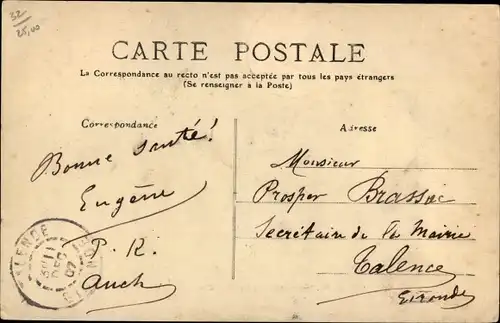 32
25,00
CARTE POSTALE
La Correspondance au recto n'est pas acceptée par tous les pays étrangers
(Se renseigner à la Poste)
Correspondance
Bonne santé!
Eugène
P. K.
Auch
Adresse
Monsieur
Prosper Brassac
Secrétaire de la Mairie
Talence
Gironde
TALENCE
11
DEC
07
GIRONDE